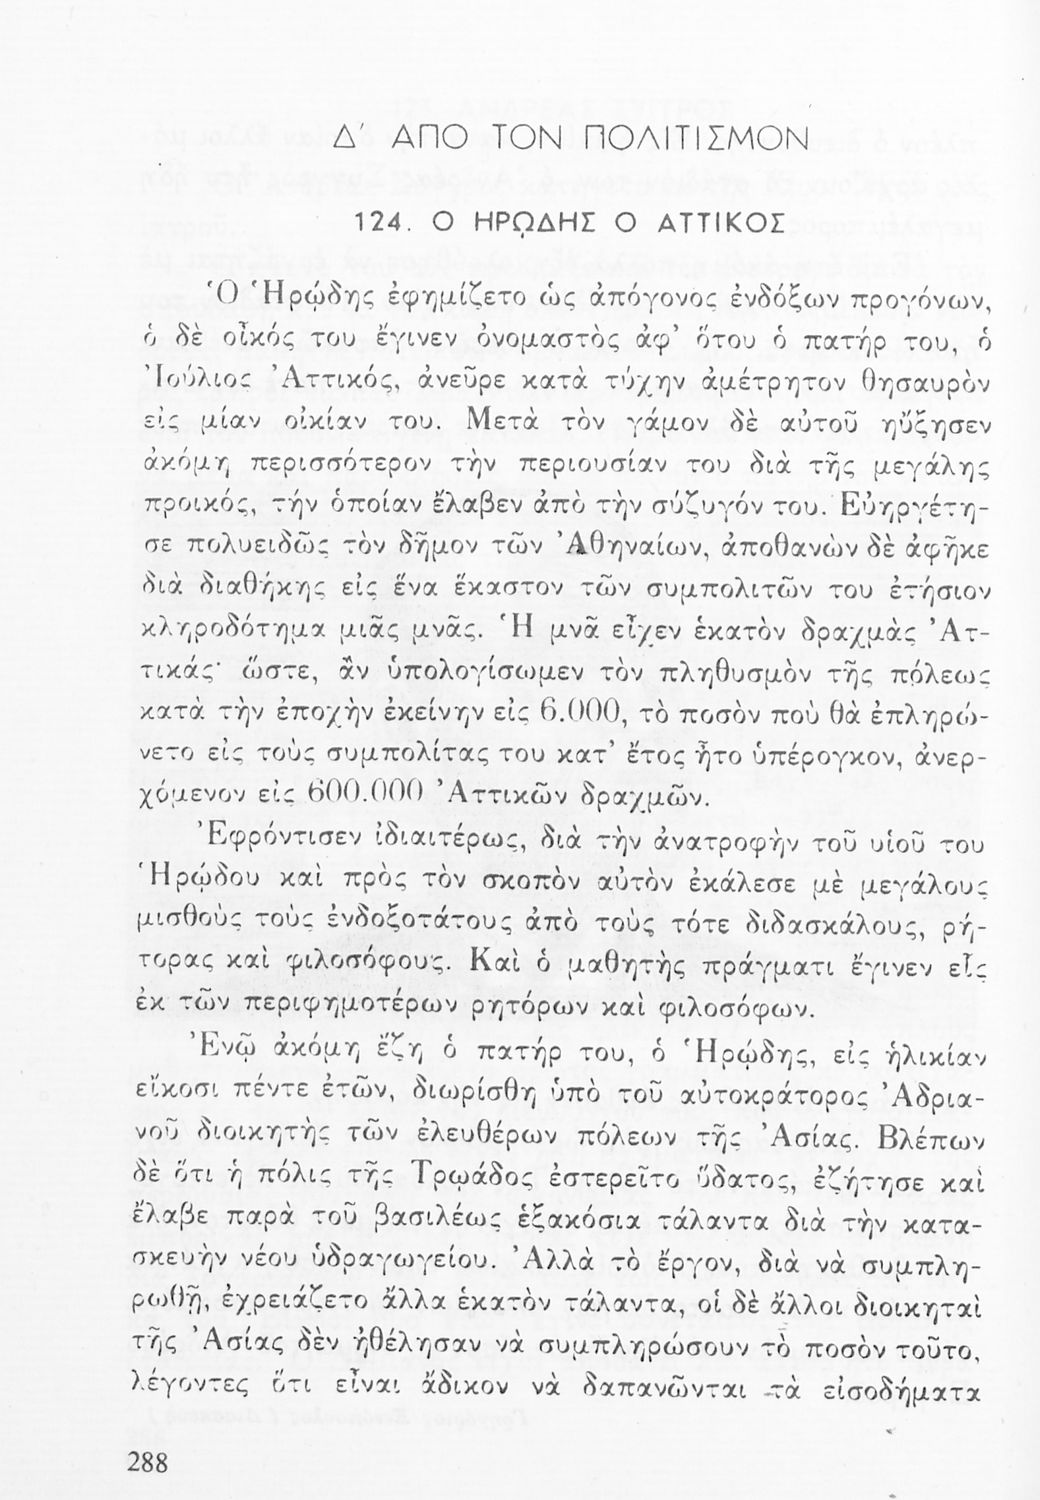 Δ' ΑΠΟ ΤΟΝ ΠΟΛΙΤΙΣΜΟΝ
124. Ο ΗΡῼΔΗΣ Ο ΑΤΤΙΚΟΣ
Ὁ Ἡρῴδης ἐφημίζετο ὡς ἀπόγονος ἐνδόξων προγόνων,
ὁ δὲ οἶκός του ἔγινεν ὀνομαστὸς ἀφ' ὅτου ὁ πατήρ του, ὁ
Ἰούλιος Ἀττικός, ἀνεῦρε κατὰ τύχην ἀμέτρητον θησαυρὸν
εἰς μίαν οἰκίαν του. Μετὰ τὸν γάμον δὲ αὐτοῦ ηὔξησεν
ἀκόμη περισσότερον τὴν περιουσίαν του διὰ τῆς μεγάλης
προικός, τήν ὁποίαν ἔλαβεν ἀπὸ τὴν σύζυγόν του. Εὐηργέτη-
σε πολυειδῶς τὸν δῆμον τῶν Ἀθηναίων, ἀποθανὼν δὲ ἀφῆκε
διὰ διαθήκης εἰς ἕνα ἕκαστον τῶν συμπολιτῶν του ἐτήσιον
κληροδότημα μιᾶς μνᾶς. Ἡ μνᾶ εἶχεν ἑκατὸν δραχμὰς Ἀτ-
τικάς· ὥστε, ἂν ὑπολογίσωμεν τὸν πληθυσμὸν τῆς πόλεως
κατὰ τὴν ἐποχὴν ἐκείνην εἰς 6.000, τὸ ποσὸν ποὺ θὰ ἐπληρώ-
νετο εἰς τοὺς συμπολίτας του κατ' ἔτος ἦτο ὑπέρογκον, ἀνερ-
χόμενον εἰς 600.000 Ἀττικῶν δραχμῶν.
Ἐφρόντισεν ἰδιαιτέρως, διὰ τὴν ἀνατροφὴν τοῦ υἱοῦ του
Ἡρῴδου καὶ πρὸς τὸν σκοπὸν αὐτὸν ἐκάλεσε μὲ μεγάλους
μισθοὺς τοὺς ἐνδοξοτάτους ἀπὸ τοὺς τότε διδασκάλους, ρή-
τορας καὶ φιλοσόφους. Καὶ ὁ μαθητὴς πράγματι ἔγινεν εἷς
ἐκ τῶν περιφημοτέρων ρητόρων καὶ φιλοσόφων.
Ἐνῷ ἀκόμη ἔζη ὁ πατήρ του, ὁ Ἡρῴδης, εἰς ἡλικίαν
εἴκοσι πέντε ἐτῶν, διωρίσθη ὑπὸ τοῦ αὐτοκράτορος Ἀδρια-
νοῦ διοικητὴς τῶν ἐλευθέρων πόλεων τῆς Ἀσίας. Βλέπων
δὲ ὅτι ἡ πόλις τῆς Τρῳάδος ἐστερεῖτο ὕδατος, ἐζήτησε καὶ
ἔλαβε παρὰ τοῦ βασιλέως ἑξακόσια τάλαντα διὰ τὴν κατα-
σκευὴν νέου ὑδραγωγείου. Ἀλλὰ τὸ ἔργον, διὰ νὰ συμπλη-
ρωθῇ, ἐχρειάζετο ἄλλα ἑκατὸν τάλαντα, οἱ δὲ ἄλλοι διοικηταὶ
τῆς Ἀσίας δὲν ἠθέλησαν νὰ συμπληρώσουν τὸ ποσὸν τοῦτο,
λέγοντες ὅτι εἶναι ἄδικον νὰ δαπανῶνται τὰ εἰσοδήματα
288